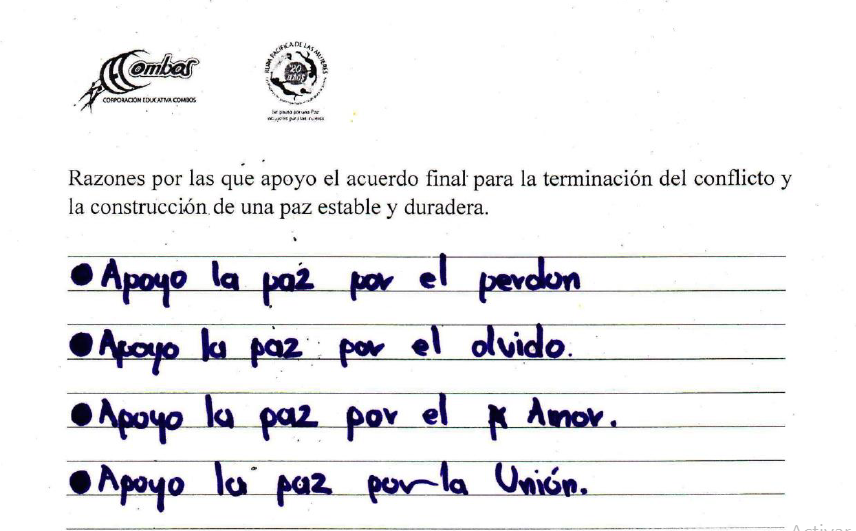 Combos
CORPORACIÓN EDUCATIVA COMBOS
RUTA PACIFICA DE LAS MUJERES
20 años
Razones por las que apoyo el acuerdo final para la terminación del conflicto y
la construcción de una paz estable y duradera.
● Apoyo la paz por el perdon
● Apoyo la paz por el olvido.
● Apoyo la paz por el Amor.
● Apoyo la paz por la Unión.